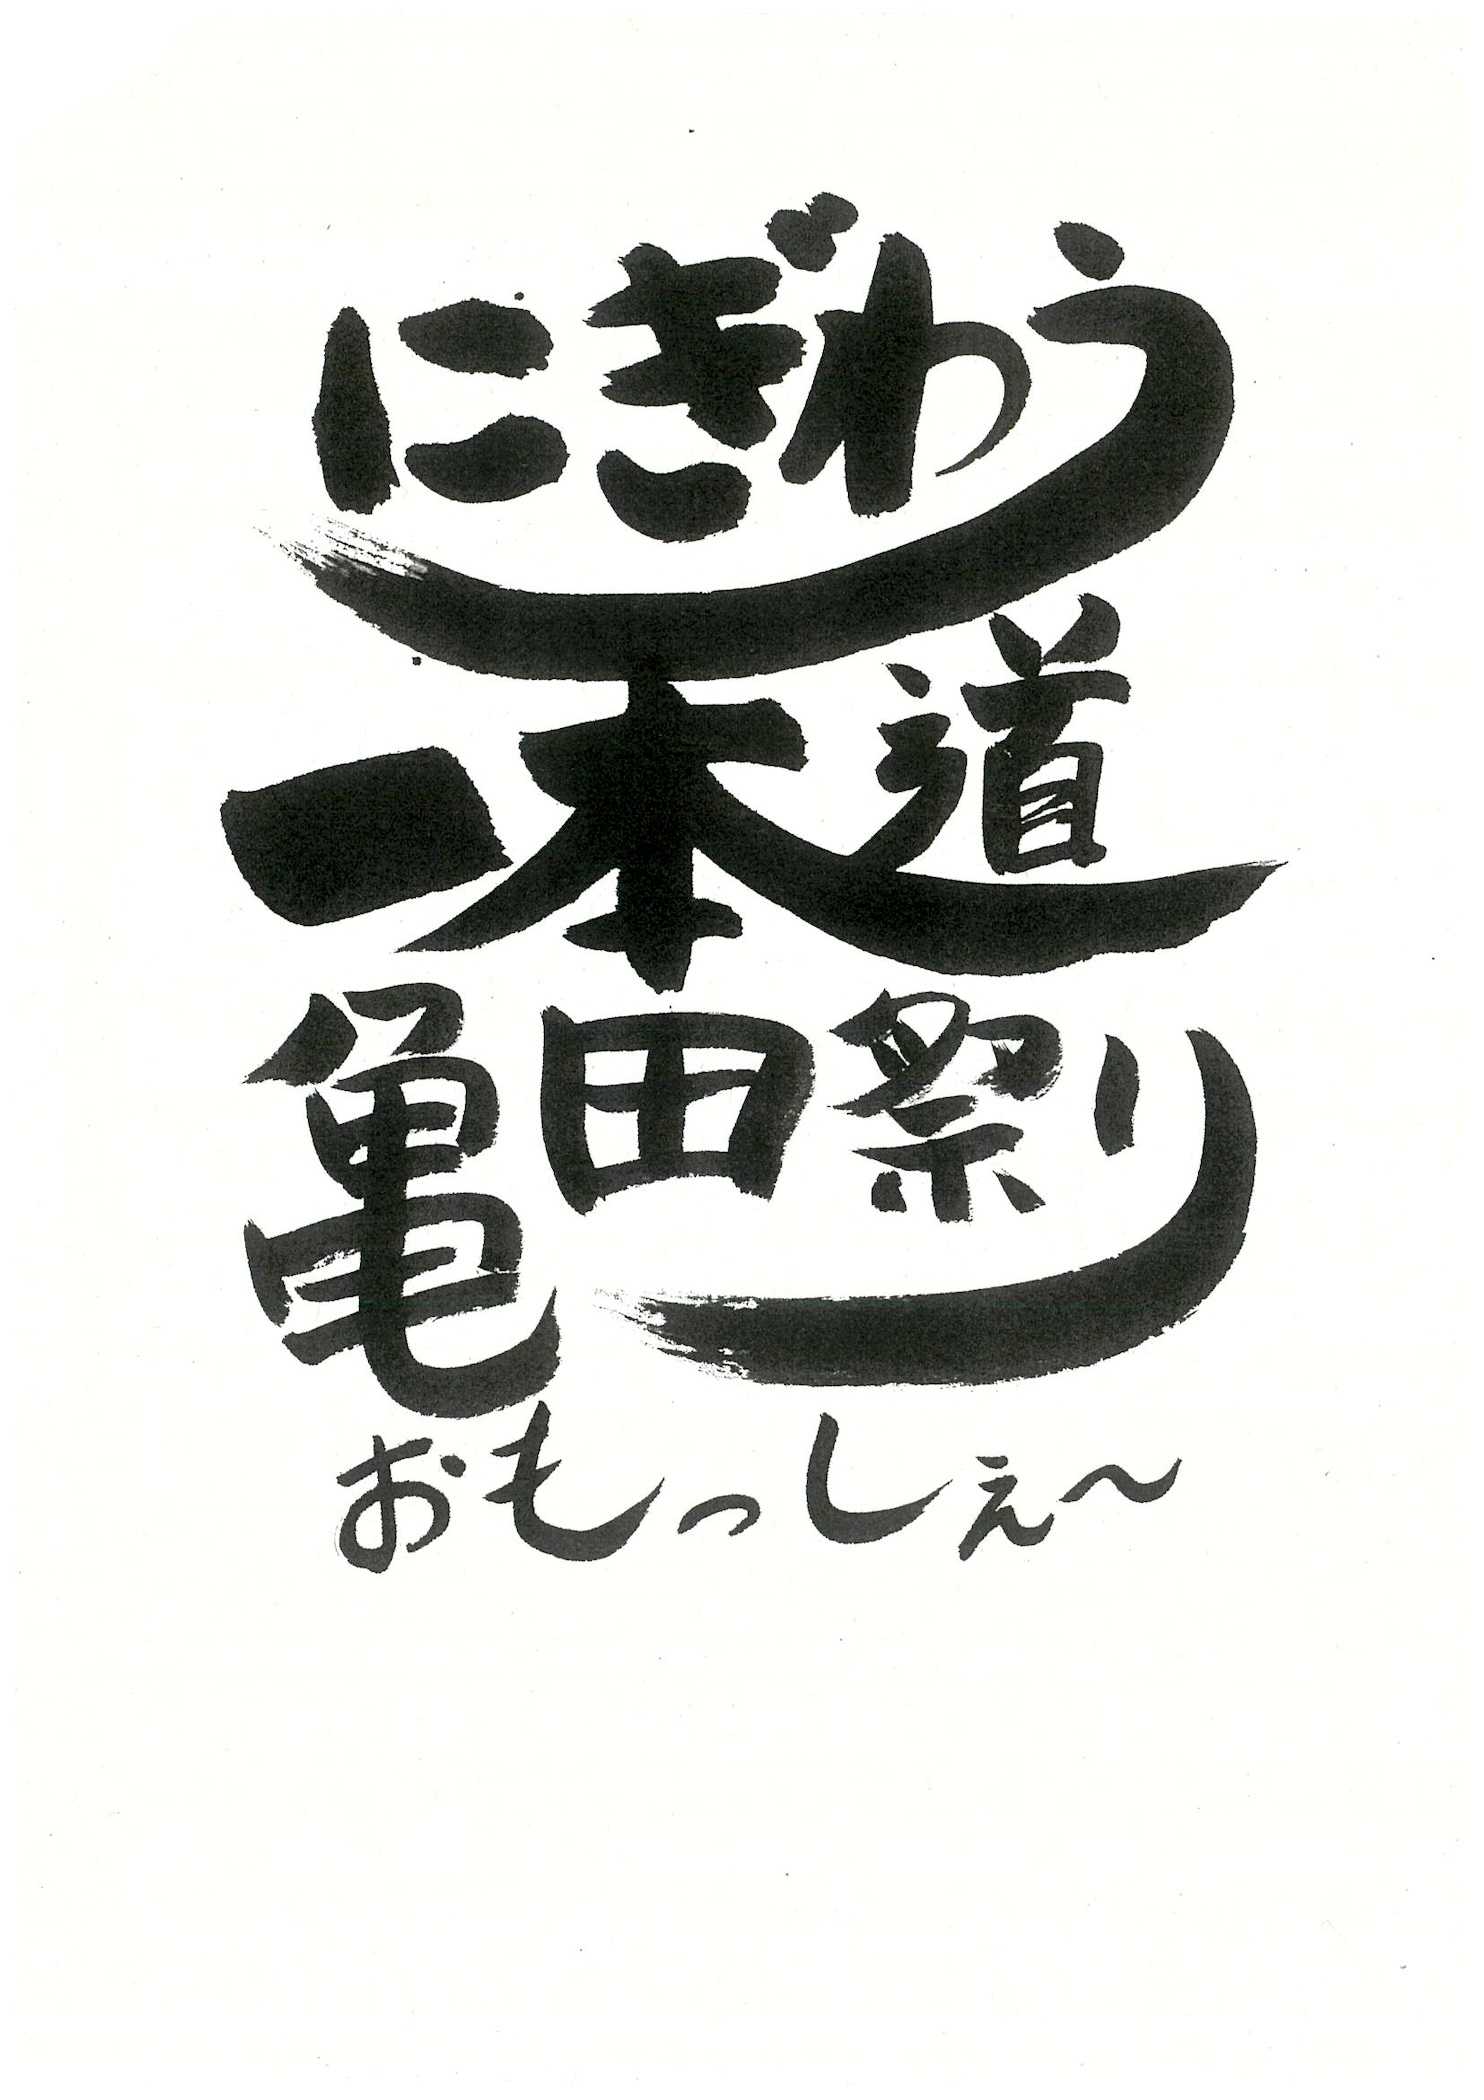 にぎわう
一本道
亀田祭り
おもっしぇ〜